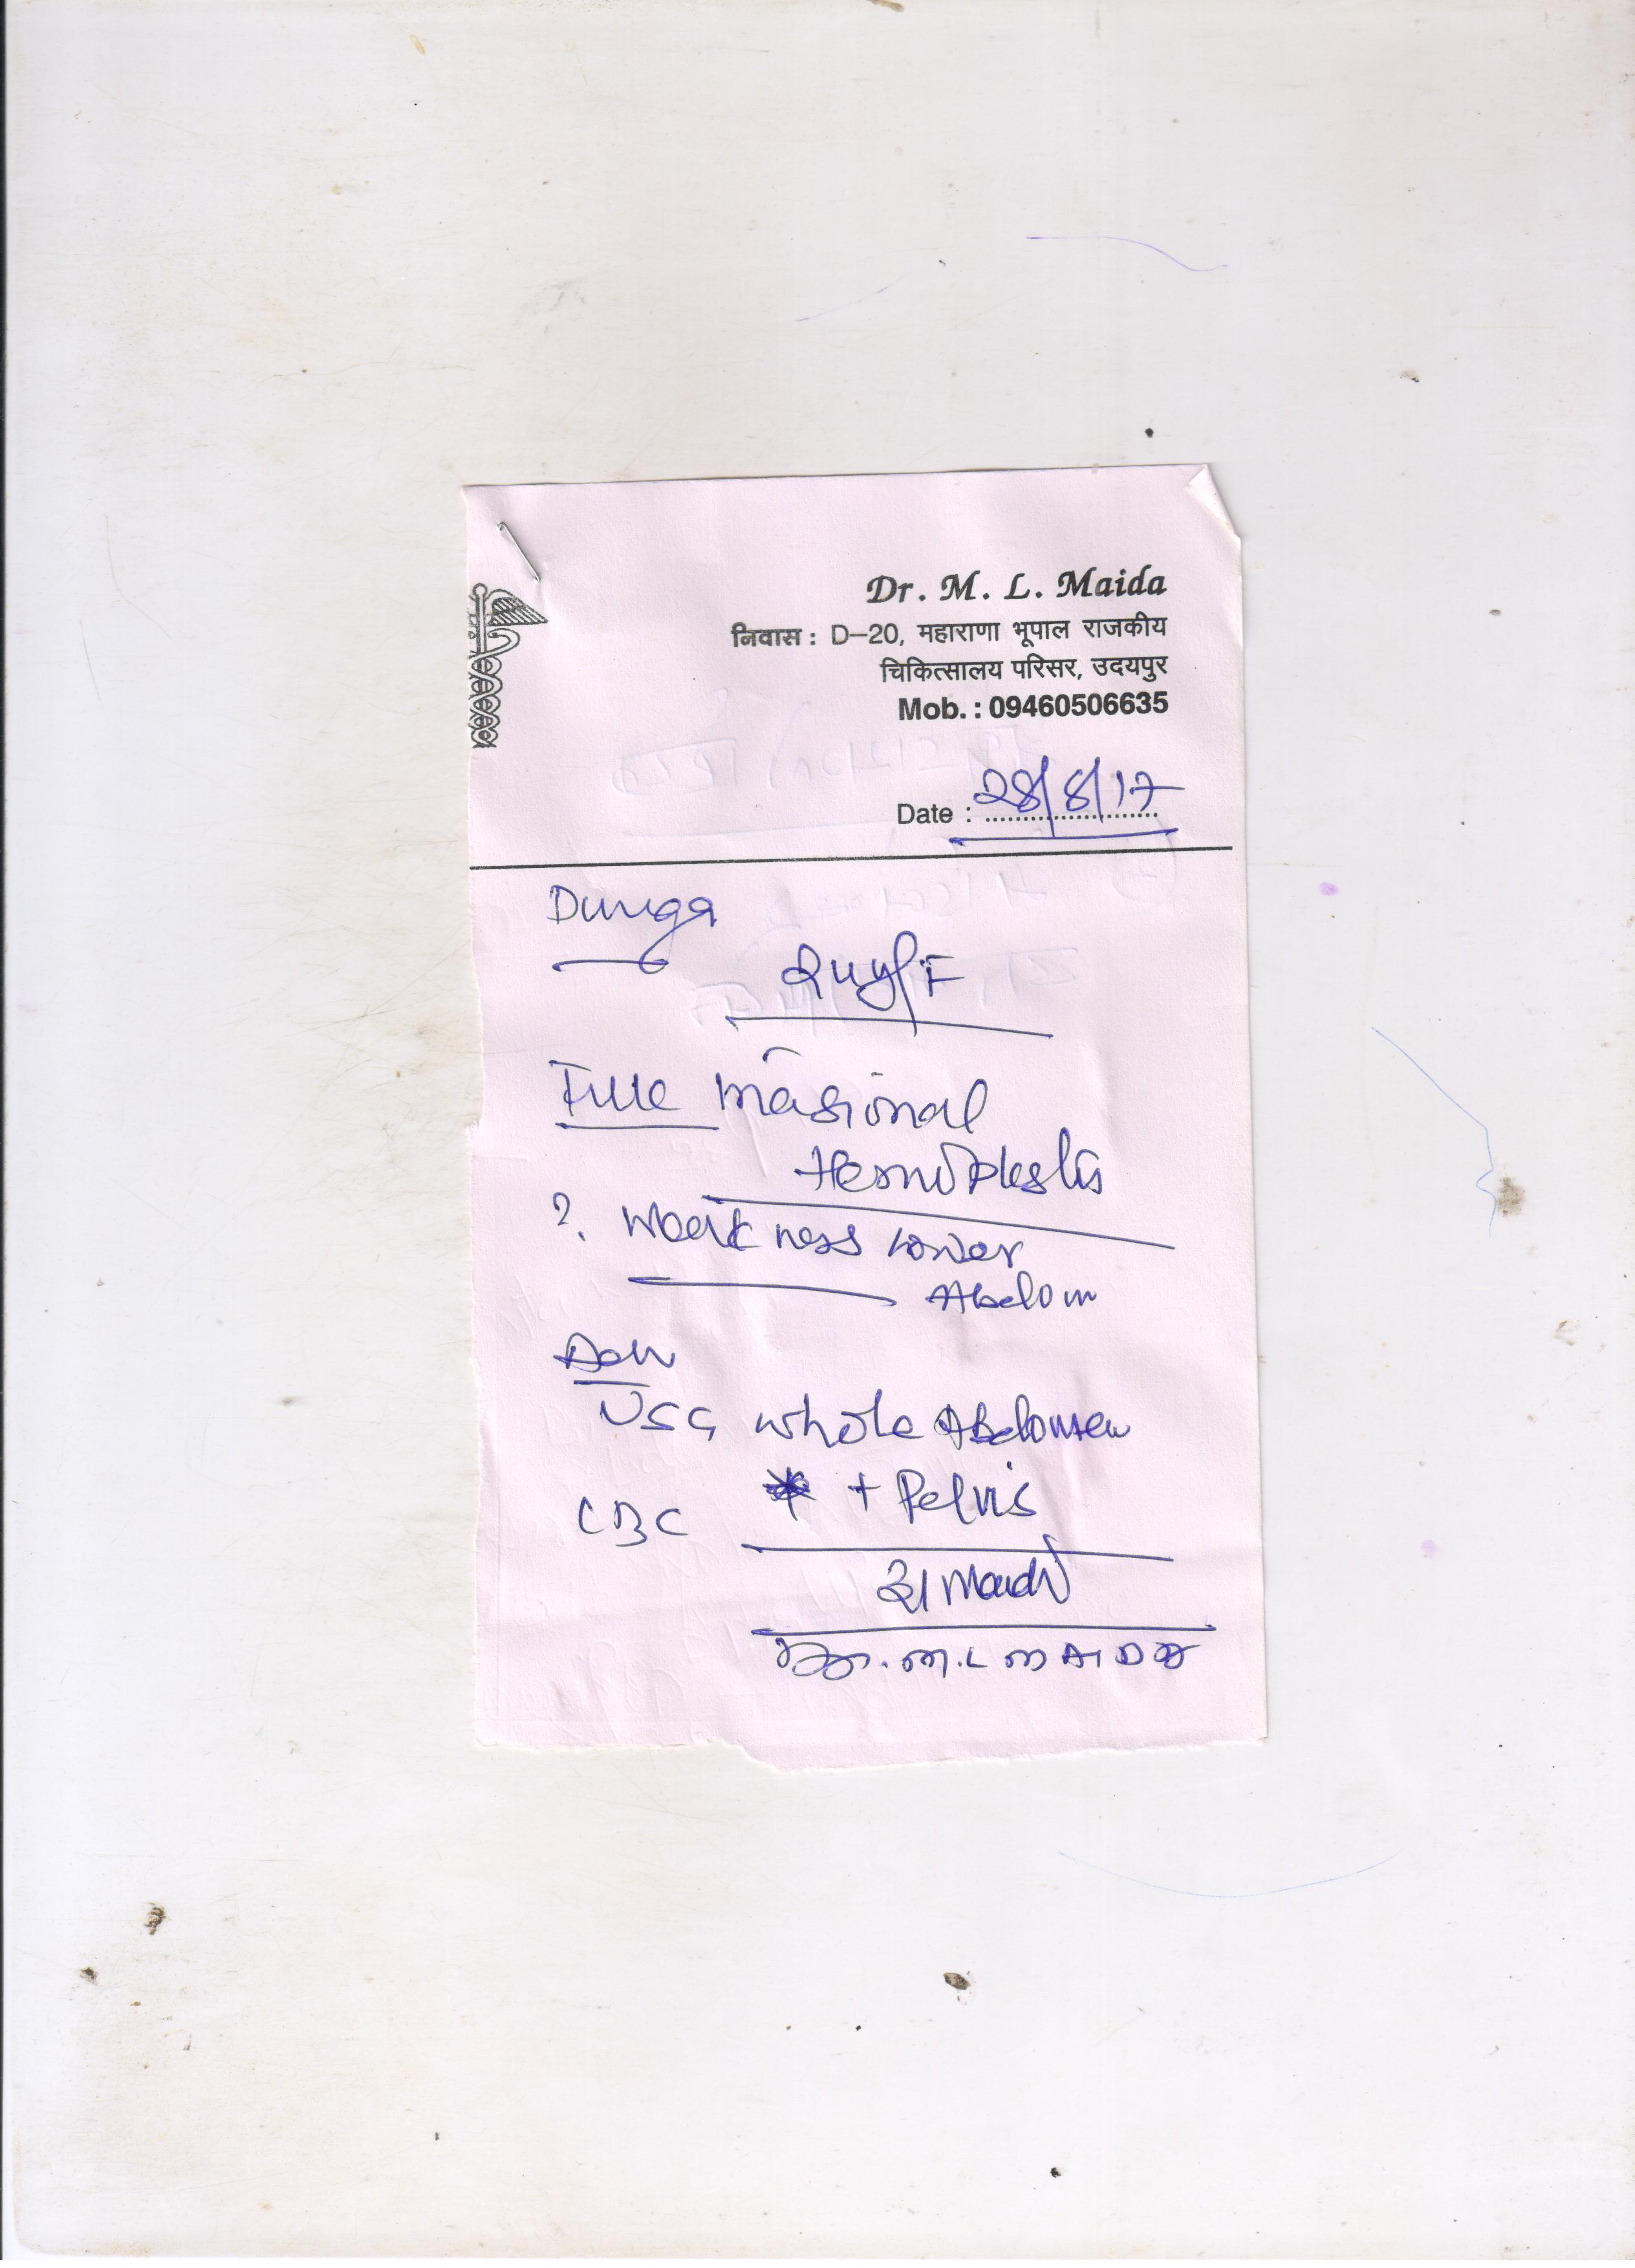 Dr. M. L. Maida
निवास : D–20, महाराणा भूपाल राजकीय
चिकित्सालय परिसर, उदयपुर
Mob. : 09460506635
Date : 28/8/17
Durga
F
Inasional
? Weakness lower
Abdom
Adv
USG whole Abdomen
+ Pelvis
CBC
Dr. M.L MAIDA